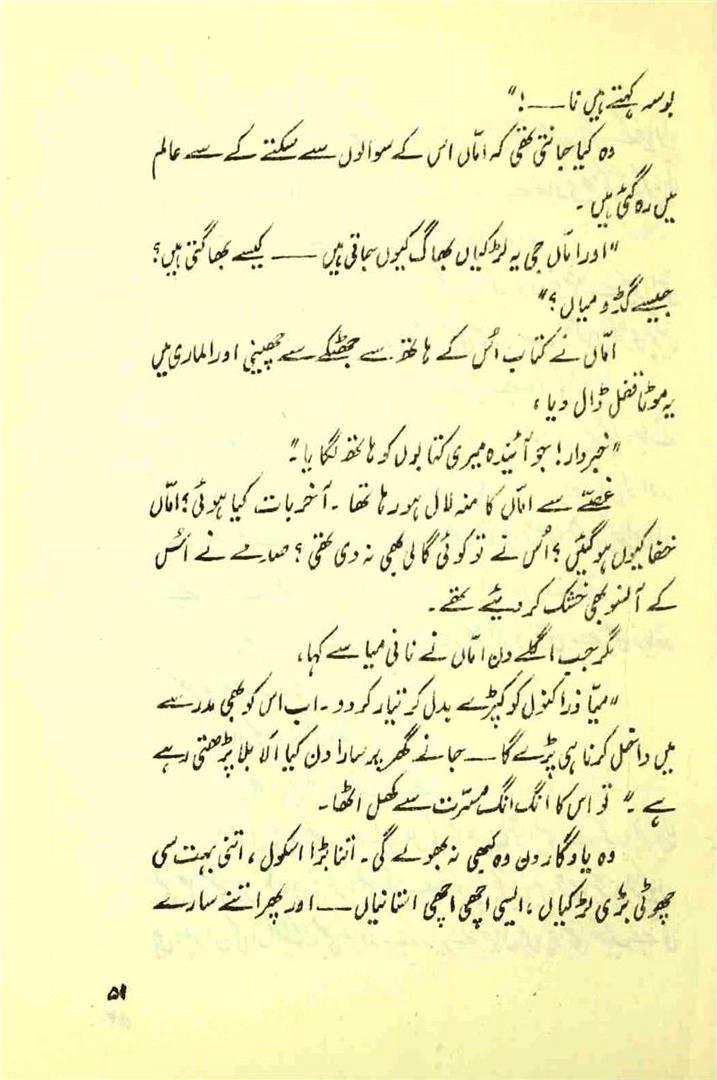 بوسہ کہتے ہیں نا ــــ !"
وہ کیا جانتی تھی کہ امّاں اس کے سوالوں سے سکتے کے سے عالم
میں رہ گئی ہیں ۔
"اور امّاں جی یہ لڑکیاں بھاگ کیوں جاتی ہیں ــــ کیسے بھاگتی ہیں؟
جیسے گڈو میاں ؟"
امّاں نے کتاب اُس کے ہاتھ سے جھٹکے سے چھینی اور الماری میں
یہ موٹا قفل ڈال دیا ،
"خبردار! جو آئیندہ میری کتابوں کو ہاتھ لگایا ۔"
غصّے سے امّاں کا منہ لال ہو رہا تھا ۔ آخر بات کیا ہوئی ؟ امّاں
خفا کیوں ہو گئیں ؟ اُس نے تو کوئی گالی بھی نہ دی تھی ؟ صدمے نے اُس
کے آنسو بھی خشک کر دیئے تھے ۔
مگر جب اگلے دن امّاں نے نانی میا سے کہا،
"میّا ذرا کنول کو کپڑے بدل کر تیار کر دو ۔ اب اس کو بھی مدرسے
میں داخل کرنا ہی پڑے گا ــــ جانے گھر پر سارا دن کیا اَلا بلا پڑھتی رہے
ہے ۔" تو اس کا انگ انگ مسرّت سے کھل اٹھا۔
وہ یادگار دن وہ کبھی نہ بھولے گی ۔ اتنا بڑا اسکول ، اتنی بہت سی
چھوٹی بڑی لڑکیاں ، ایسی اچھی اچھی استانیاں ــــ اور پھر اتنے سارے
۵۱